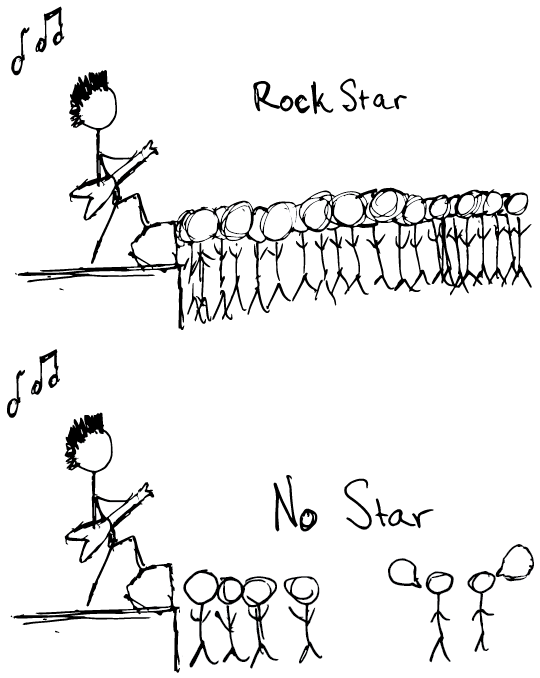 Rock Star
No Star